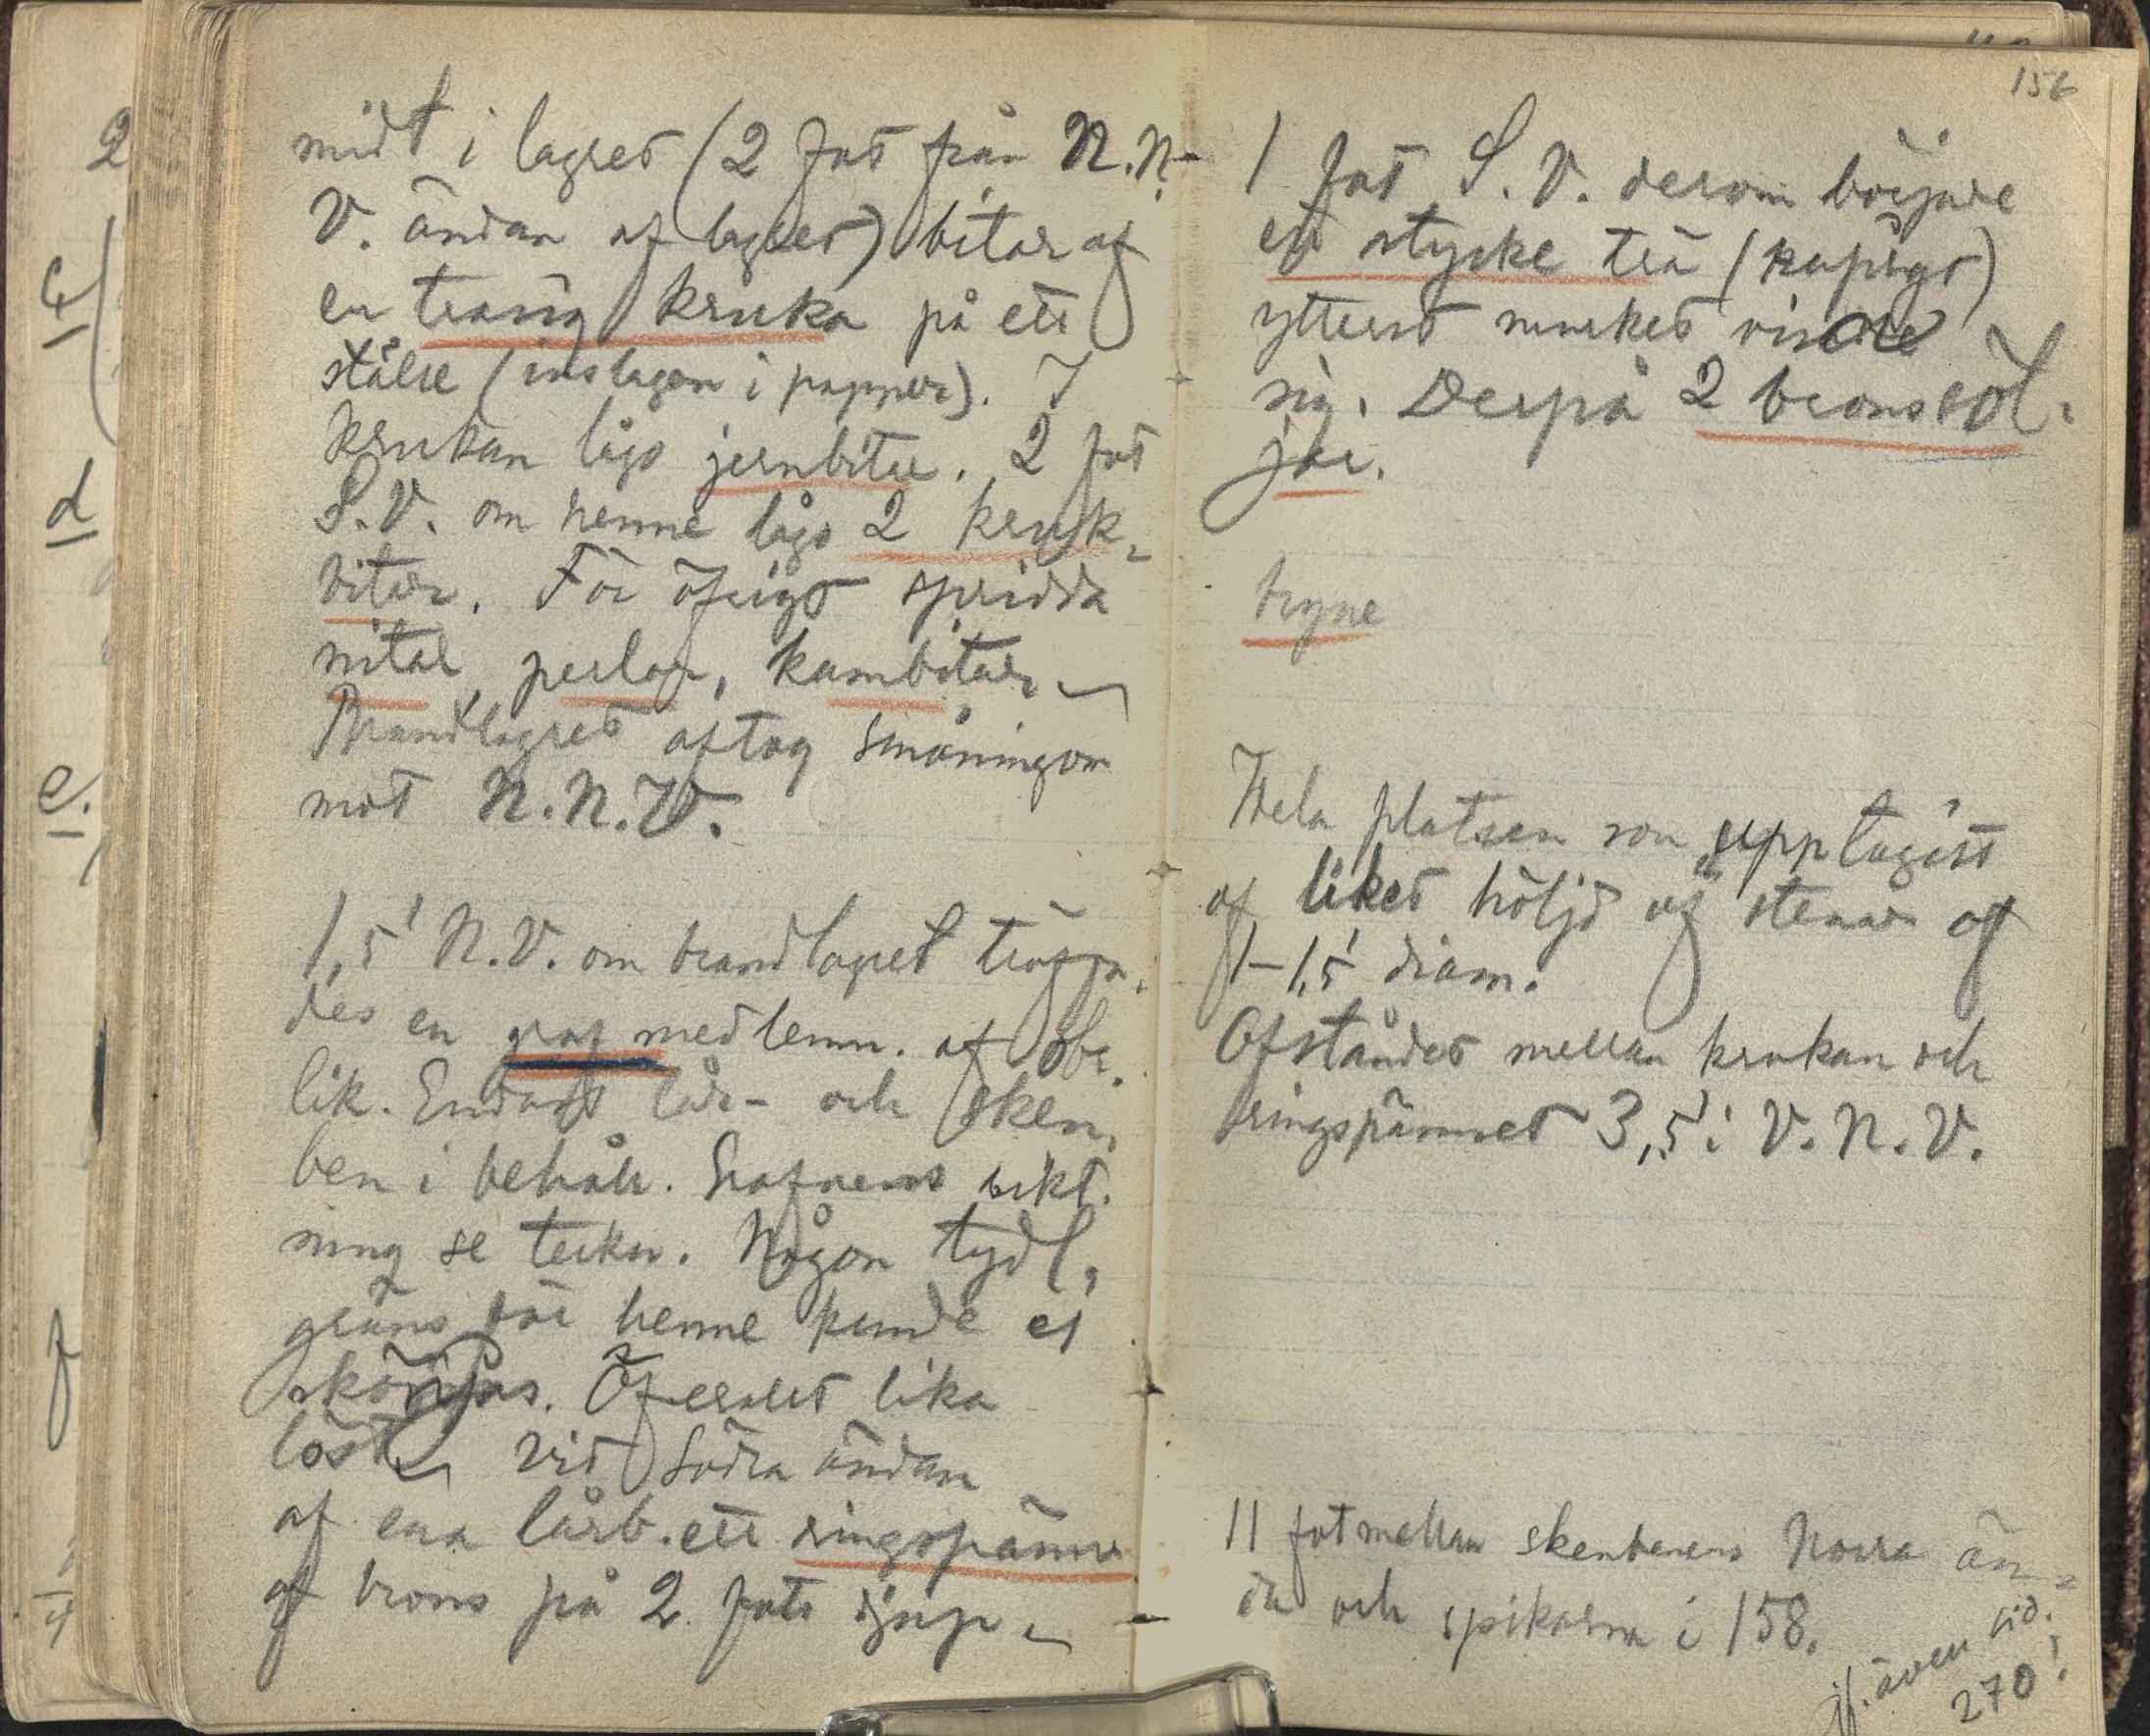 midt i lagret (2 fot från N.N.
V. ändan af lagret) bitar af
en trasig kruka på ett
ställe (inslagen i papper). I
krukan lågo jernbitar. 2 fot
S.V. om henne lågo 2 kruk-
bitar. För öfrigt spridda
nitar, perlor, kambitar.
Brandlagret aftog småningom
mot N.N.V.
1,5' N.V. om brandlagret träffa-
des en graf med lemn. af obr.
lik. Endast lår- och sken-
ben i behåll. Grafvens rikt-
ning se teckn. Någon tydl.
gräns för henne kunde ej
skönjas. Öfverallt lika
löst. Vid södra ändan
af ena lårb. ett ringspänne
af brons på 2 fots djup
156
1 fot S.V. derom började
ett stycke trä
ytterst murket visa
sig. Derpå 2 bronssöl-
jor.
bryne
Hela platsen som upptagits
af liket höljd af stenar af
1–1,5' diam.
Afståndet mellan krukan och
ringspännet 3,5' i V.N.V.
11 fot mellan skenbenens norra än-
da och spikarna i 158.
jf. även sid.
270!
2
c
d
e.
f